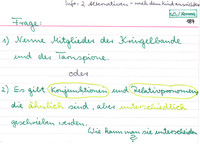 Info: 2 Alternativen - nach dem Kind
Frage:
1) Nenne Mitglieder der Kringelbande
und der Tamspione.
oder
2) Es gibt Konjunktionen und Relativpronomen,
die ähnlich sind, aber unterschiedlich
geschrieben werden.
Wie kann man sie unterscheiden
?